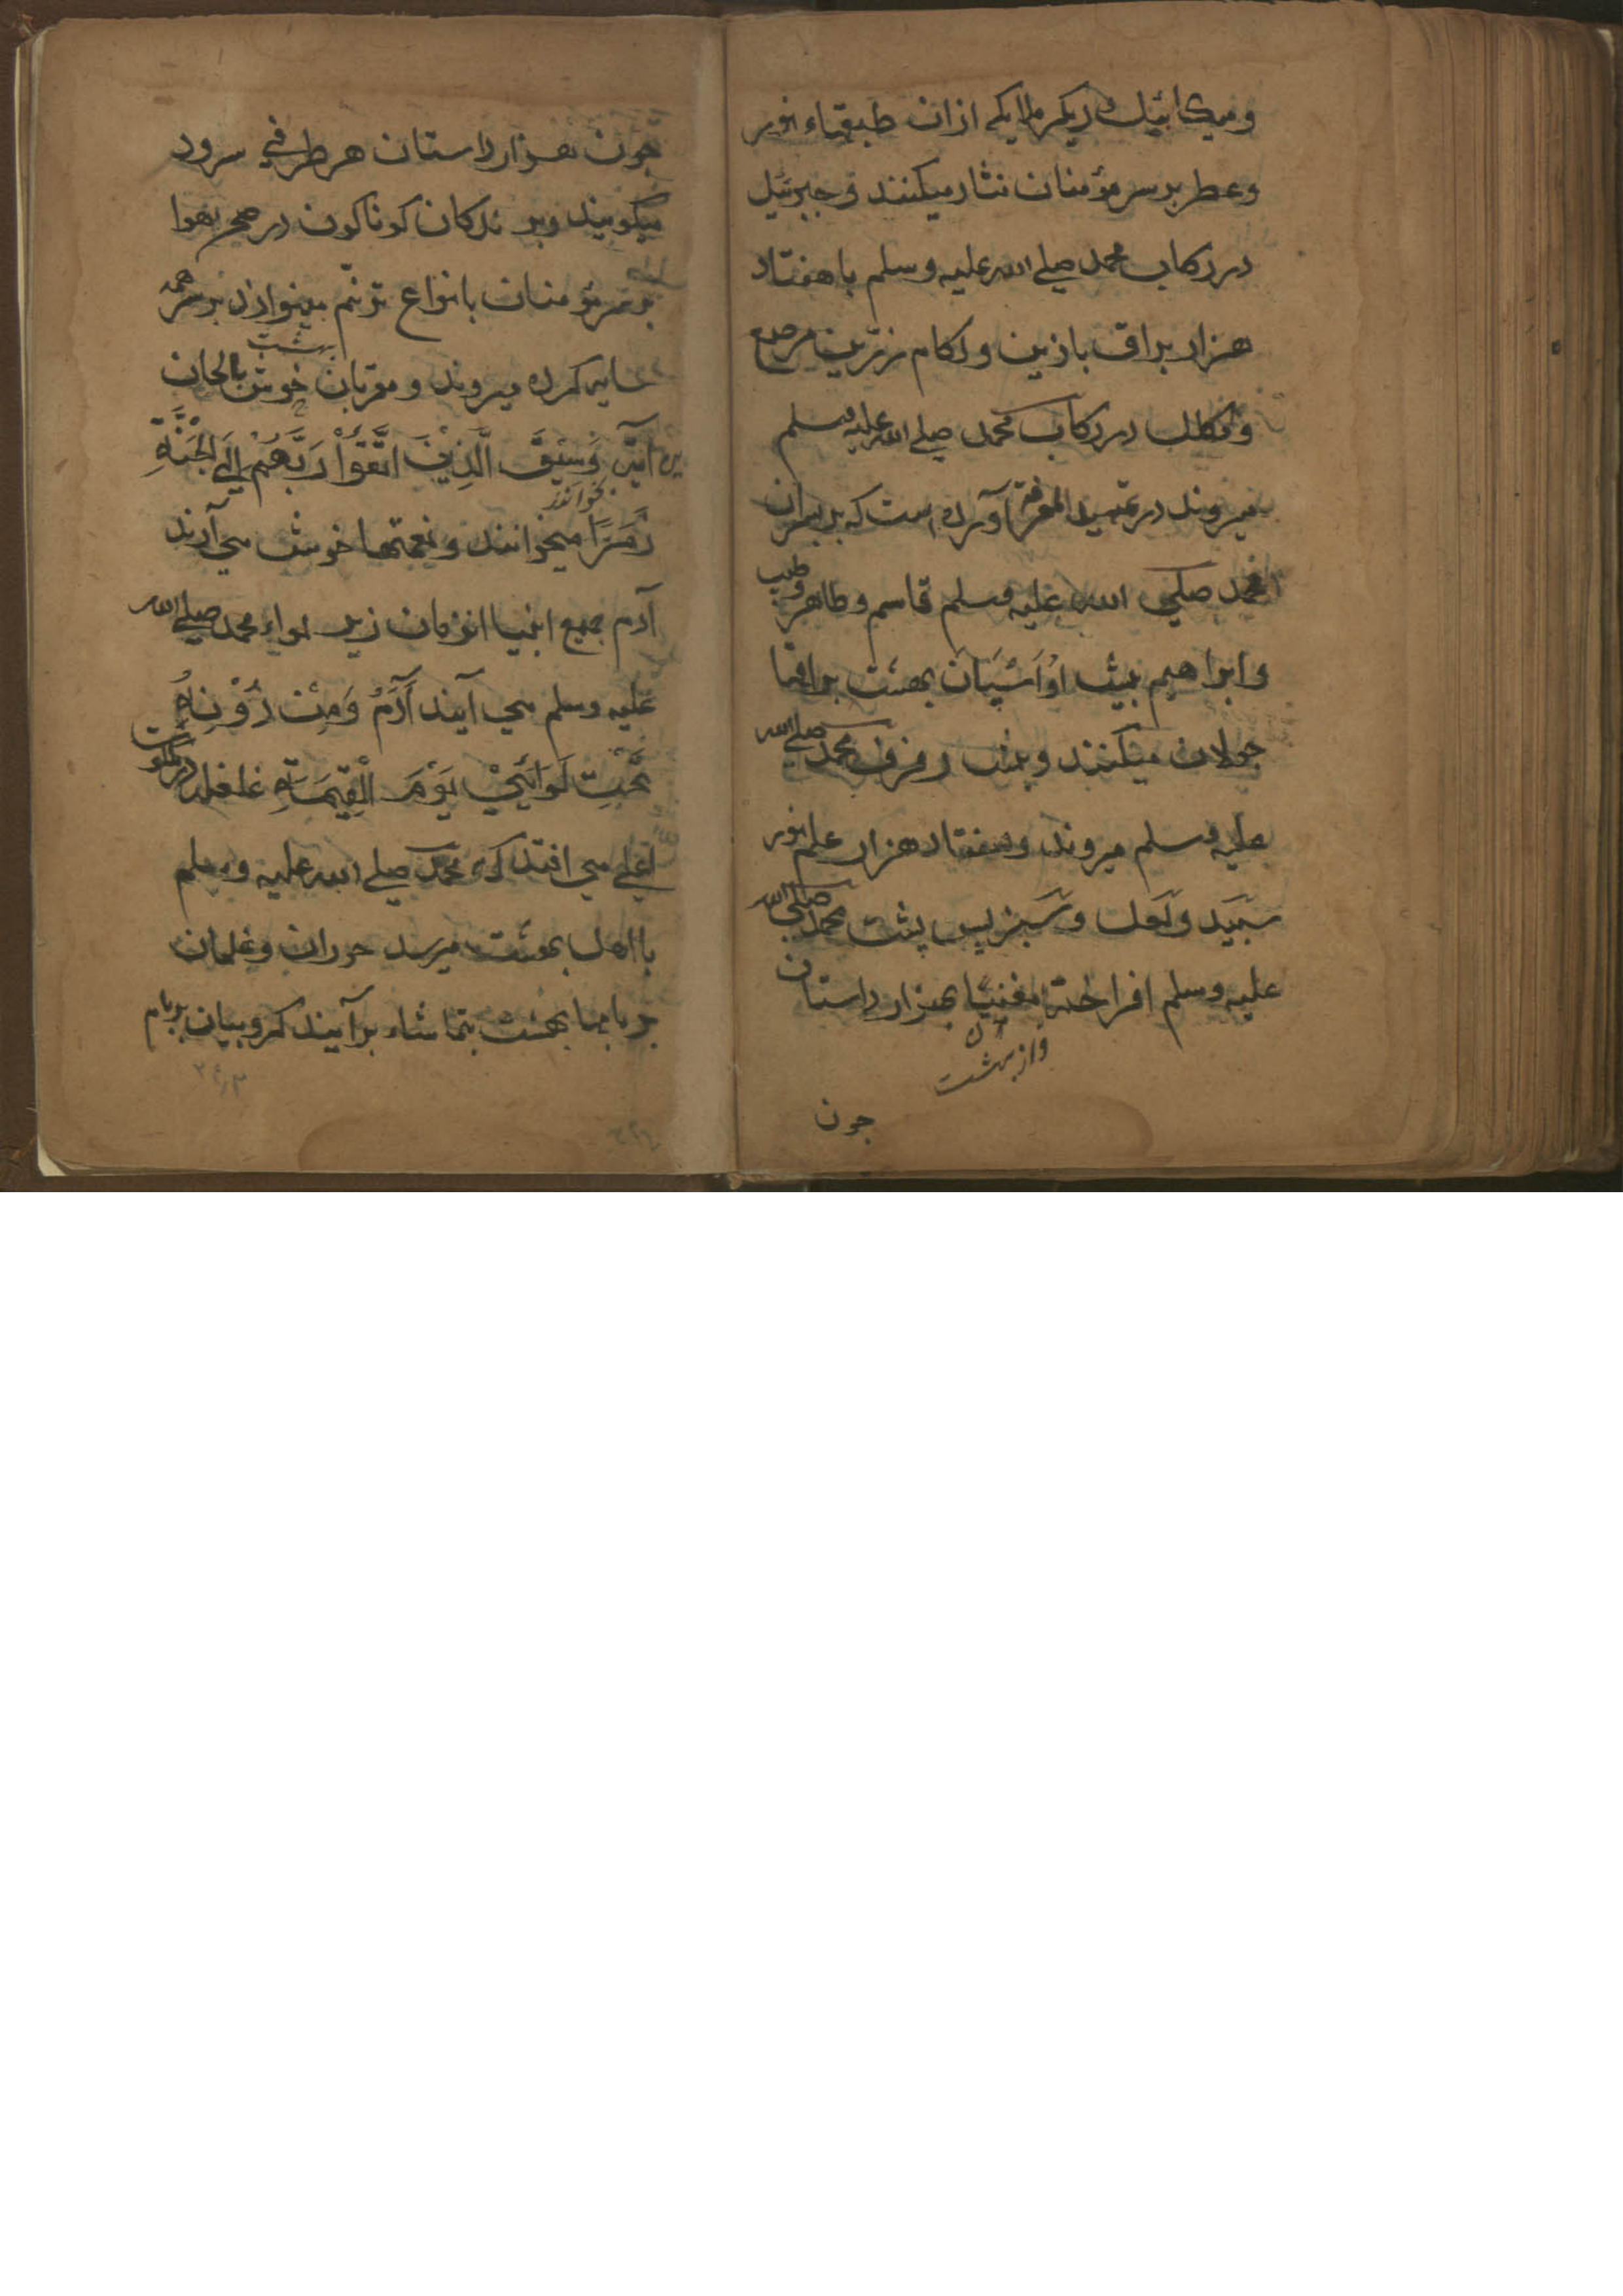 ومیکائیل دیکر ملایکه ازان طبقهاء نور
وعطر بر سر مؤمنان نثار میکنند و جبرئیل
در رکاب محمد صلی الله علیه وسلم با هفتاد
هزار براق بازین ولکام زرین مرصع
ومکلل در رکاب محمد صلی الله علیه وسلم
میروند در تمهید المعرفة آورده است که پسران
محمد صلی الله علیه وسلم قاسم وطاهر وطیب
وابراهیم پیش او اسپان بهشت براقها
جولان میکنند وپیش رفرف محمد صلی الله
علیه وسلم میروند وهفتاد هزار علم نور
سپید ولعل وسبز پس پشت محمد صلی الله
علیه وسلم افراخته مغنیان هزار داستان
واز بهشت
جون
جون هزار داستان هر طرفی سرود
میکویند وپرندکان کوناکون در صحن هوا
بر سر مؤمنان بانواع ترنم مینوازند بر سر همه
سایه کرده میروند ومقربان بهشت خوش بالحان
این آیت وَسِیْقَ الَّذِیْنَ اتَّقَوْا رَبَّهُمْ اِلَی الْجَنَّةِ
زُمَرًا میخوانند ونعمتها خوش می آرند
آدم جمیع انبیا انزمان زیر لواء محمد صلی الله
علیه وسلم می آیند آدَمُ وَمَنْ دُوْنِهُ
تَحْتِ لَوَائِیْ یَوْمَ الْقِیَمَةِ غلغله در ملکوت
اعلی می افتد که محمد صلی الله علیه وسلم
با اهل بهشت میرسد حوران وغلمان
بر بامها بهشت بتماشاء برآیند کروبیان بر بام